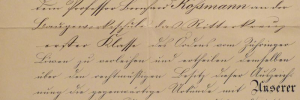 dem Professor Bernhard Kossmann an der
das Ritterkreuz
erster Klasse des Ordens vom Zähringer
Löwen zu verleihen und ertheilen demselben
über die rechtmäßigen Besitz dieser Auszeich
nung die gegenwärtige Urkunde mit Unserer